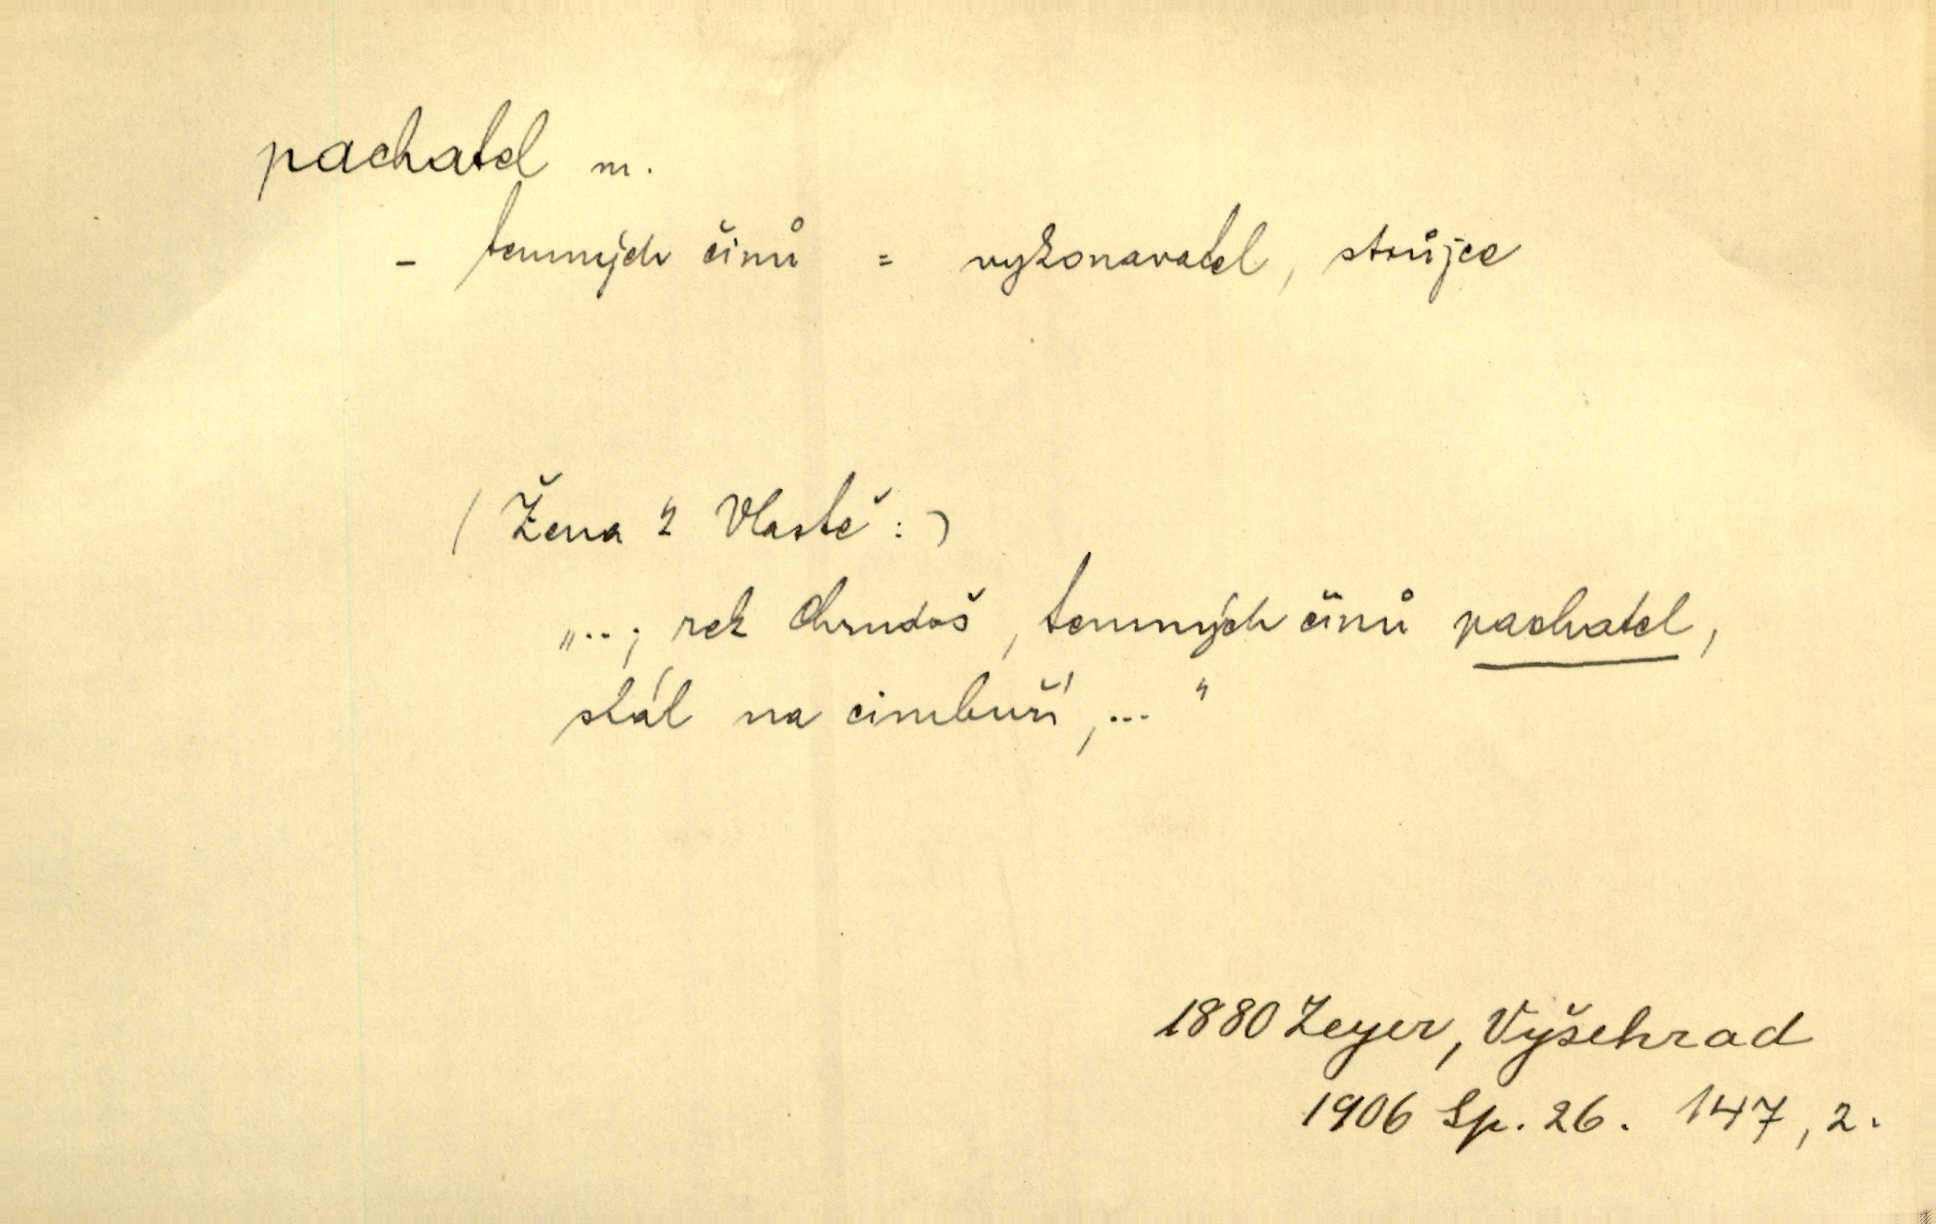 pachatel m.
- temných činů = vykonavatel, strůjce
(Žena k Vlastě:)
„..; rek Chrudoš, temných činů pachatel,
stál na cimbuří,..."
1880 Zeyer, Vyšehrad
1906 Sp. 26. 147, 2.